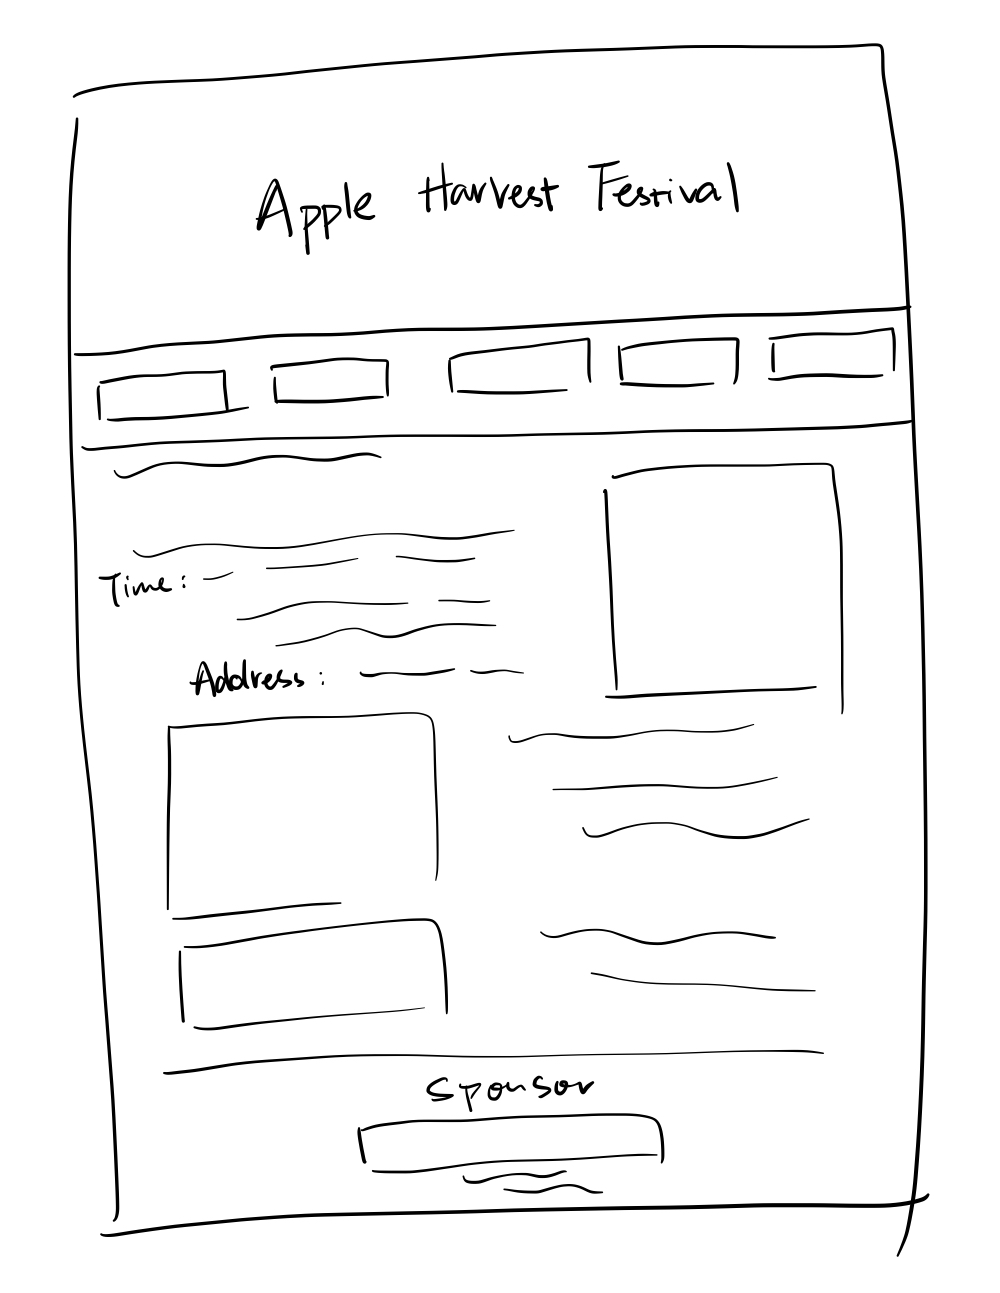 Apple Harvest Festival
Time:
Address:
Sponsor